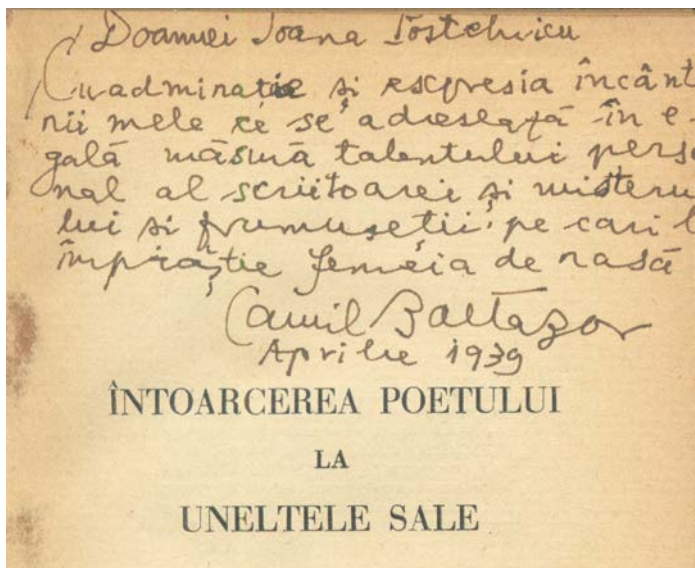 Doamnei Ioana Postelnicu
Cu admirație și escpresia încânt
rii mele ce se adresează în e-
gală măsură talentului perso
nal al scriitoarei și misteru
lui și frumuseții, pe cari l
împrăștie femeia de rasă
Camil Baltazar
Aprilie 1939
ÎNTOARCEREA POETULUI
LA
UNELTELE SALE